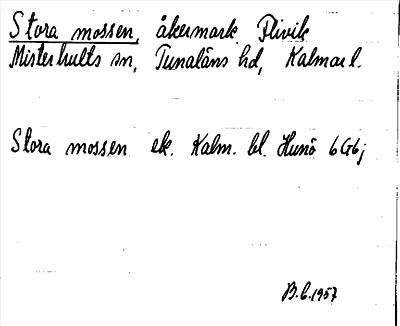 Stora mossen, åkermark Flivik
Misterhults sn, Tunaläns hd, Kalmar l.
Stora mossen ek. Kalm. bl. Hunö 6G6j
B.G. 1957